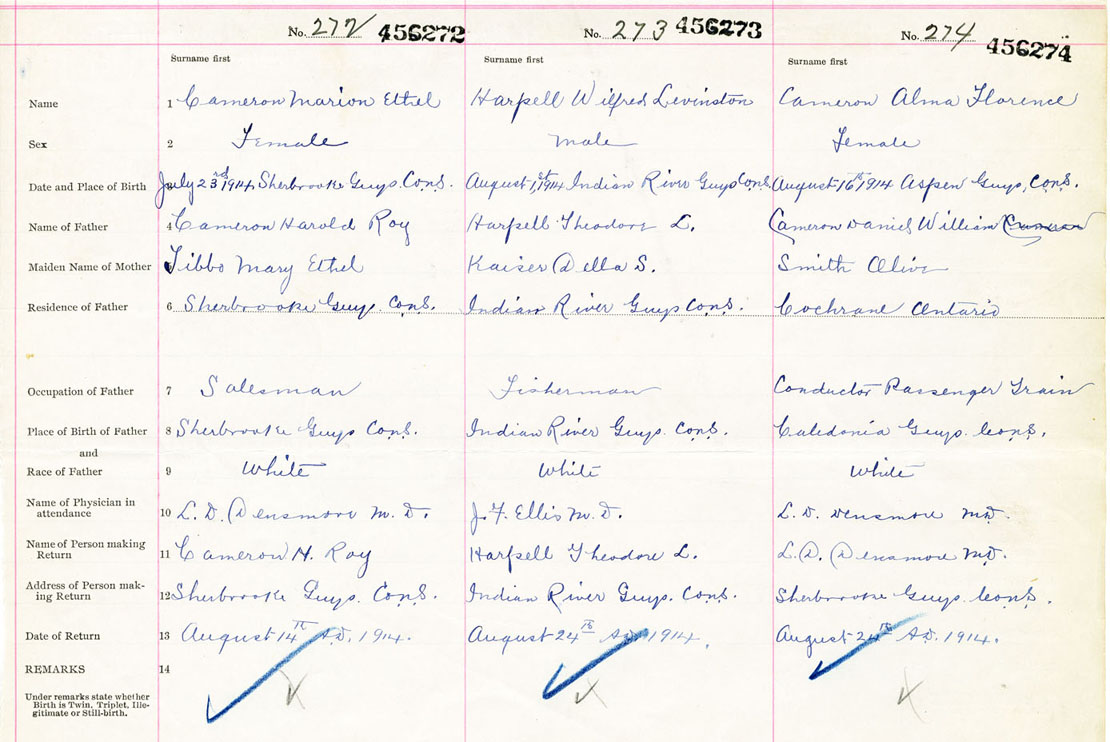 No. 272 456272 No. 273 456273 No. 274 456274
Surname first Surname first Surname first
Name 1 Cameron Marion Ethel Harpell Wilfred Levinston Cameron Alma Florence
Sex 2 Female Male Female
Date and Place of Birth 3 July 23rd 1914, Sherbrooke Guys. Cons. August 1st, 1914 Indian River Guys Cons. August 16th 1914 Aspen Guys, Cons.
Name of Father 4 Cameron Harold Roy Harpell Theodore L. Cameron Daniel William
Maiden Name of Mother Tibbo Mary Ethel Kaiser Della S. Smith Olive
Residence of Father 6 Sherbrooke Guys. Cons. Indian River Guys Cons. Cochrane Ontario
Occupation of Father 7 Salesman Fisherman Conductor Passenger Train
Place of Birth of Father 8 Sherbrooke Guys Cons. Indian River Guys. Cons. Caledonia Guys. Cons.
and
Race of Father 9 White White White
Name of Physician in
attendance 10 L. D. Densmore M. D. J. F. Ellis M. D. L. D. Densmore MD.
Name of Person making
Return 11 Cameron H. Roy Harpell Theodore L. L. D. Densmore MD.
Address of Person mak-
ing Return 12 Sherbrooke Guys. Cons. Indian River Guys. Cons. Sherbrooke Guys. Cons.
Date of Return 13 August 14th A.D. 1914. August 24th A.D. 1914. August 24th A.D. 1914.
REMARKS 14
Under remarks state whether
Birth is Twin, Triplet, Ille-
gitimate or Still-birth.